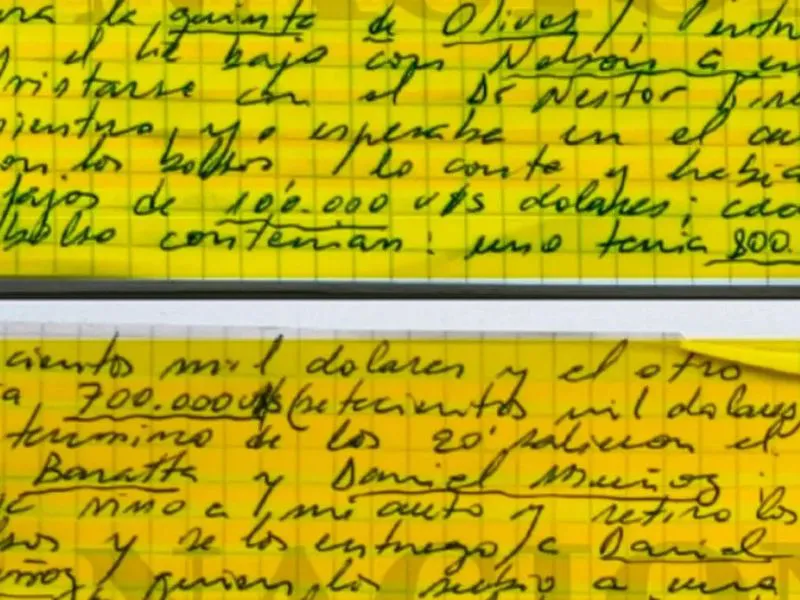 la quinta de Olivos
el Lic bajo con Nelson G en
con el Dr Nestor
y yo esperaba en el au
los bolsos lo conte y habia
fajos de 100.000 u$s dolares; cad
bolso contenian: uno tenia 800.
cientos mil dolares y el otro
a 700.000 u$s (setecientos mil dolares
termino de los 20' salieron el
Baratta y Daniel Muñoz.
vino a mi auto y retiro los
sos y se los entrego a Daniel
uñoz, quien los subio a una